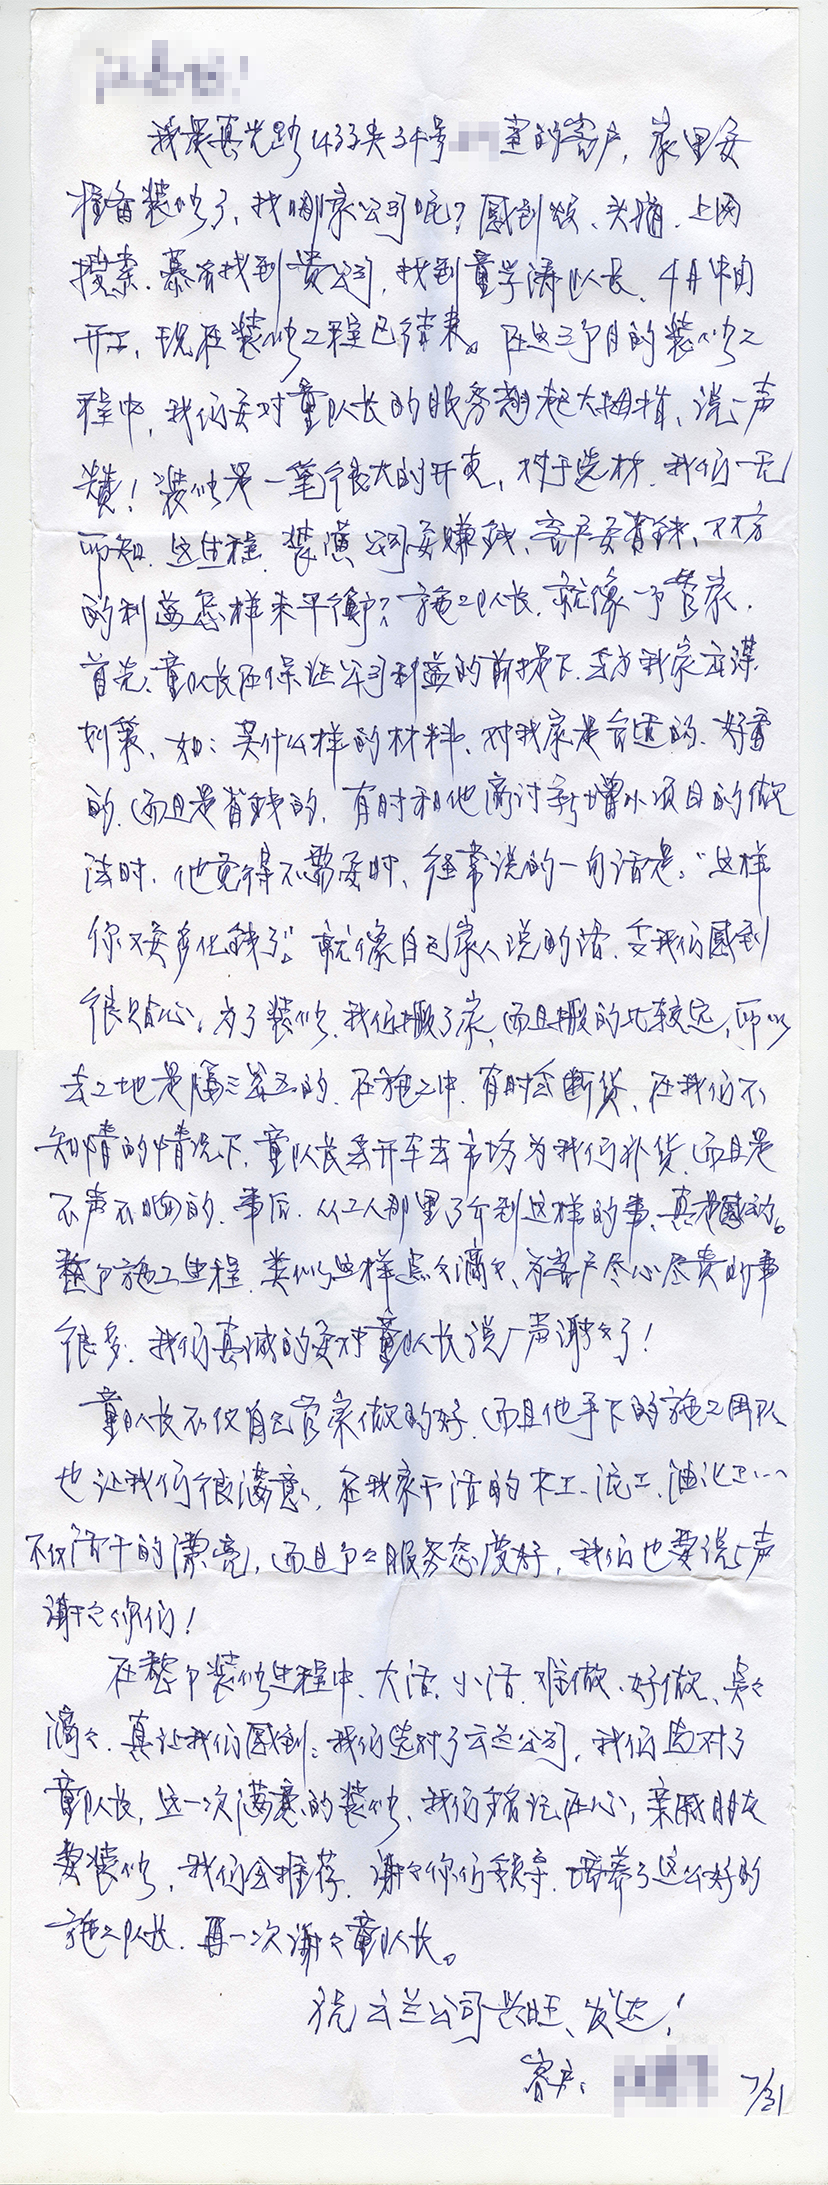 我是真光路433弄34号 室的客户，家里要
准备装修了，找哪家公司呢？感到烦、头痛．上网
搜索．慕名找到贵公司，找到童学涛队长、4月中旬
开工，现在装修工程已结束。在这三个月的装修工
程中，我们要对童队长的服务翘起大拇指、说一声
赞！装修是一笔很大的开支，对于选材．我们一无
所知．这过程．装潢公司要赚钱、客户要省钱、双方
的利益怎样来平衡？施工队长．就像一个管家．
首先：童队长在保证公司利益的前提下．会为我家出谋
划策、如：买什么样的材料、对我家是合适的、好看
的．而且是省钱的，有时和他商讨新增小项目的做
法时．他觉得不需要时、经常说的一句话是：“这样
你又要多化钱了”。就像自己家人说的话．令我们感到
很贴心。为了装修．我们搬了家，而且搬的比较远，所以
去工地是隔三差五的．在施工中．有时会断货、在我们不
知情的情况下．童队长会开车去市场为我们补货．而且是
不声不响的．事后．从工人那里了介到这样的事、真是感动。
整个施工过程．类似这样点々滴々、为客户尽心尽责的事
很多．我们真诚的要对童队长说一声谢々了！
童队长不仅自己管家做的好．而且他手下的施工团队
也让我们很满意，在我家干活的木工、泥工、油漆工…
不仅活干的漂亮，而且个々服务态度好，我们也要说一声
谢々你们！
在整个装修过程中、大活．小活．难做、好做、点々
滴々．真让我们感到：我们选对了云兰公司，我们选对了
童队长，这一次满意的装修、我们铭记在心，亲戚朋友
要装修，我们会推荐．谢々你们领导．培养了这么好的
施工队长．再一次谢々童队长。
祝云兰公司兴旺、发达！
客户： 7/31